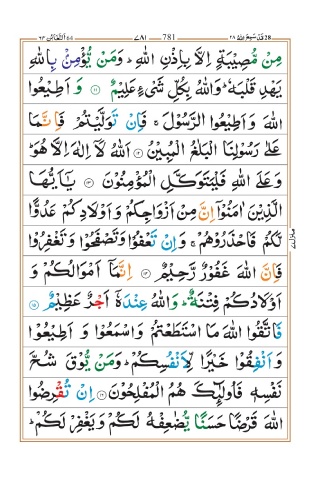 قد سمع الله ٢٨ 781 ٧٨١ التغابن ٦٤
مِنْ مُّصِيْبَةٍ اِلَّا بِاِذْنِ اللّٰهِ ؕ وَمَنْ يُّؤْمِنْۢ بِاللّٰهِ
يَهْدِ قَلْبَهٗ ؕ وَاللّٰهُ بِكُلِّ شَىْءٍ عَلِيْمٌ ﴿۱۱﴾ وَ اَطِيْعُوا
اللّٰهَ وَ اَطِيْعُوا الرَّسُوْلَ ۚ فَاِنْ تَوَلَّيْتُمْ فَاِنَّمَا
عَلٰى رَسُوْلِنَا الْبَلٰغُ الْمُبِيْنُ ﴿۱۲﴾ اَللّٰهُ لَاۤ اِلٰهَ اِلَّا هُوَ ؕ
وَ عَلَى اللّٰهِ فَلْيَتَوَكَّلِ الْمُؤْمِنُوْنَ ﴿۱۳﴾ يٰۤاَيُّهَا
الَّذِيْنَ اٰمَنُوْۤا اِنَّ مِنْ اَزْوَاجِكُمْ وَ اَوْلَادِكُمْ عَدُوًّا
لَّكُمْ فَاحْذَرُوْهُمْ ۚ وَ اِنْ تَعْفُوْا وَ تَصْفَحُوْا وَ تَغْفِرُوْا
فَاِنَّ اللّٰهَ غَفُوْرٌ رَّحِيْمٌ ﴿۱۴﴾ اِنَّمَاۤ اَمْوَالُكُمْ وَ
اَوْلَادُكُمْ فِتْنَةٌ ؕ وَاللّٰهُ عِنْدَهٗۤ اَجْرٌ عَظِيْمٌ ﴿۱۵﴾
فَاتَّقُوا اللّٰهَ مَا اسْتَطَعْتُمْ وَ اسْمَعُوْا وَ اَطِيْعُوْا
وَ اَنْفِقُوْا خَيْرًا لِّاَنْفُسِكُمْ ؕ وَمَنْ يُّوْقَ شُحَّ
نَفْسِهٖ فَاُولٰٓئِكَ هُمُ الْمُفْلِحُوْنَ ﴿۱۶﴾ اِنْ تُقْرِضُوا
اللّٰهَ قَرْضًا حَسَنًا يُّضٰعِفْهُ لَكُمْ وَ يَغْفِرْ لَكُمْ ؕ